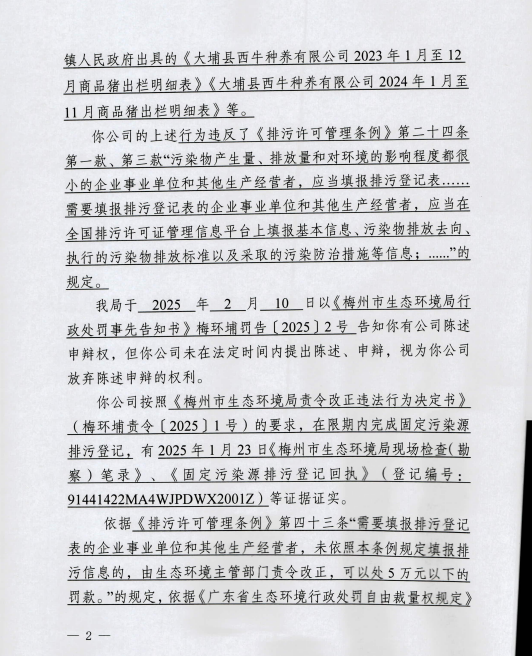 镇人民政府出具的《大埔县西牛种养有限公司2023年1月至12
月商品猪出栏明细表》《大埔县西牛种养有限公司2024年1月至
11月商品猪出栏明细表》等。
你公司的上述行为违反了《排污许可管理条例》第二十四条
第一款、第三款“污染物产生量、排放量和对环境的影响程度都很
小的企业事业单位和其他生产经营者，应当填报排污登记表……
需要填报排污登记表的企业事业单位和其他生产经营者，应当在
全国排污许可证管理信息平台上填报基本信息、污染物排放去向、
执行的污染物排放标准以及采取的污染防治措施等信息；……”的
规定。
我局于 2025 年 2 月 10 日以《梅州市生态环境局行
政处罚事先告知书》梅环埔罚告〔2025〕2号 告知你有公司陈述
申辩权，但你公司未在法定时间内提出陈述、申辩，视为你公司
放弃陈述申辩的权利。
你公司按照《梅州市生态环境局责令改正违法行为决定书》
（梅环埔责令〔2025〕1号）的要求，在限期内完成固定污染源
排污登记，有2025年1月23日《梅州市生态环境局现场检查（勘
察）笔录》、《固定污染源排污登记回执》（登记编号：
91441422MA4WJPDWX2001Z）等证据证实。
依据《排污许可管理条例》第四十三条“需要填报排污登记
表的企业事业单位和其他生产经营者，未依照本条例规定填报排
污信息的，由生态环境主管部门责令改正，可以处5万元以下的
罚款。”的规定，依据《广东省生态环境行政处罚自由裁量权规定》
— 2 —